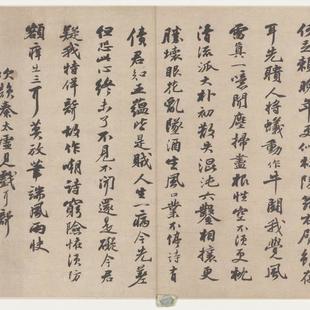 耳先聵人將蟻動作牛鬥我覺風
雷真一噫聞塵掃盡根性空不須更枕
清流派大朴初散失混沌六鑿相攘更
勝壞眼花亂墜酒生風口業不停詩有
債君知五蘊皆是賊人生一病今先差
但恐此心終未了不見不聞還是礙今君
疑我特佯聾故作嘲詩窮險怪須防
額癢出三耳莫放筆端風雨快
次韻秦太虛見戲耳聾